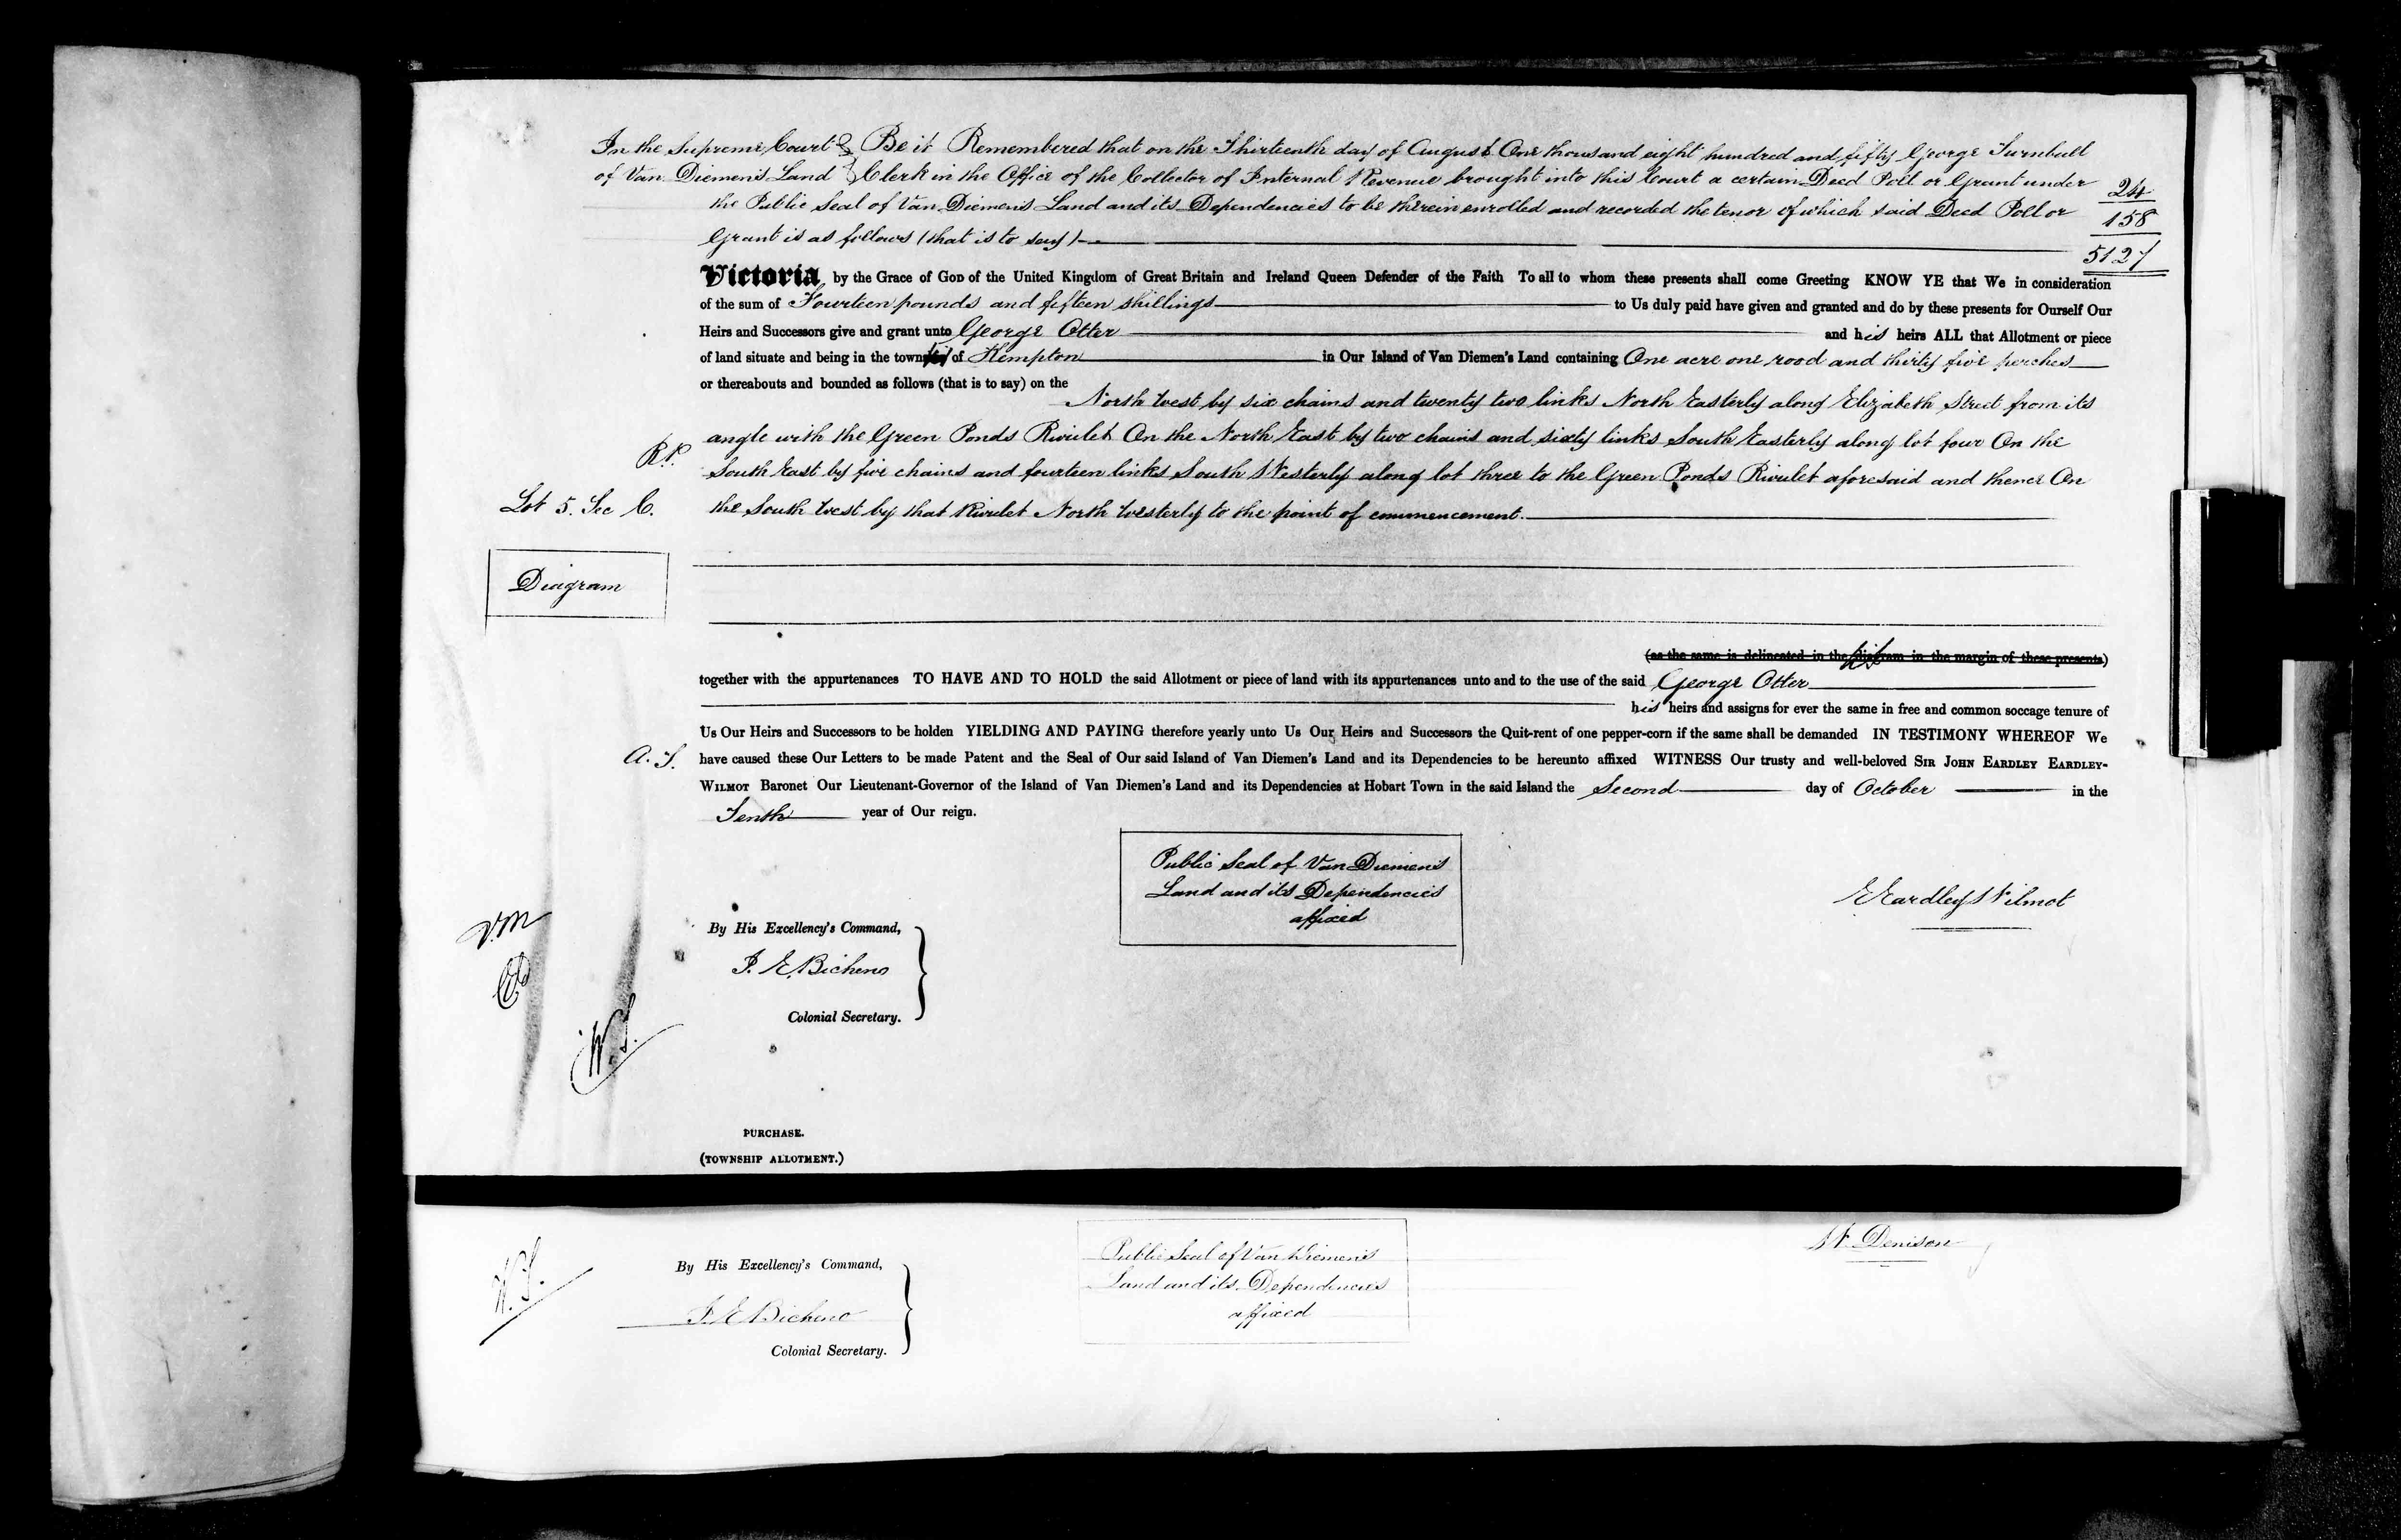 In the Supreme Court } Be it Remembered that on the Thirteenth day of August One thousand eight hundred and fifty George Turnbull
of Van Diemen's Land } Clerk in the Office of the Collector of Internal Revenue brought into this Court a certain Deed Poll or Grant under
the Public Seal of Van Diemen's Land and its Dependencies to be therein enrolled and recorded the tenor of which said Deed Poll or
Grant is as follows (that is to say)
24
158
5127
Victoria by the Grace of God of the United Kingdom of Great Britain and Ireland Queen Defender of the Faith To all to whom these presents shall come Greeting KNOW YE that We in consideration
of the sum of Fourteen pounds and fifteen shillings to Us duly paid have given and granted and do by these presents for Ourself Our
Heirs and Successors give and grant unto George Otter and his heirs ALL that Allotment or piece
of land situate and being in the town of Kempton in Our Island of Van Diemen's Land containing One acre one rood and thirty five perches
or thereabouts and bounded as follows (that is to say) on the
North West by six chains and twenty two links North Easterly along Elizabeth Street from its
angle with the Green Ponds Rivulet On the North East by two chains and sixty links South Easterly along lot four On the
R.P.
South East by five chains and fourteen links South Westerly along lot three to the Green Ponds Rivulet aforesaid and thence On
Lot 5. Sec C.
the South West by that Rivulet North Westerly to the point of commencement.
Diagram
(as the same is delineated in the diagram in the margin of these presents)
together with the appurtenances TO HAVE AND TO HOLD the said Allotment or piece of land with its appurtenances unto and to the use of the said George Otter
his heirs and assigns for ever the same in free and common soccage tenure of
Us Our Heirs and Successors to be holden YIELDING AND PAYING therefore yearly unto Us Our Heirs and Successors the Quit-rent of one pepper-corn if the same shall be demanded IN TESTIMONY WHEREOF We
A. S.
have caused these Our Letters to be made Patent and the Seal of Our said Island of Van Diemen's Land and its Dependencies to be hereunto affixed WITNESS Our trusty and well-beloved SIR JOHN EARDLEY EARDLEY-
WILMOT Baronet Our Lieutenant-Governor of the Island of Van Diemen's Land and its Dependencies at Hobart Town in the said Island the Second day of October in the
Tenth year of Our reign.
Public Seal of Van Diemen's
Land and its Dependencies
affixed
E Eardley Wilmot
V.M
By His Excellency's Command,
J. E. Bicheno
Colonial Secretary.
W.S.
PURCHASE.
(TOWNSHIP ALLOTMENT.)
W.S.
By His Excellency's Command,
J. E Bicheno
Colonial Secretary.
Public Seal of Van Diemen's
Land and its Dependencies
affixed
W. Denison